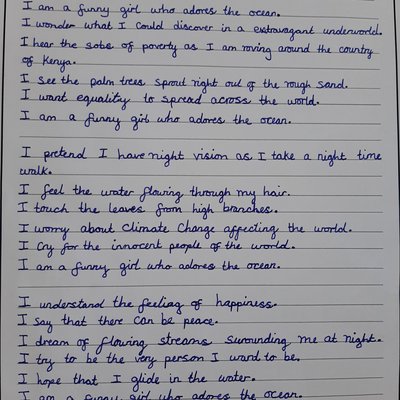 I am a funny girl who adores the ocean.
I wonder what I could discover in a extravagant underworld.
I hear the sobs of poverty as I am roving around the country
of Kenya.
I see the palm trees sprout right out of the rough sand.
I want equality to spread across the world.
I am a funny girl who adores the ocean.
I pretend I have night vision as I take a night time
walk.
I feel the water flowing through my hair.
I touch the leaves from high branches.
I worry about Climate Change affecting the world.
I cry for the innocent people of the world.
I am a funny girl who adores the ocean.
I understand the feeling of happiness.
I say that there can be peace.
I dream of flowing streams surounding me at night.
I try to be the very person I want to be.
I hope that I glide in the water.
I am a funny girl who adores the ocean.